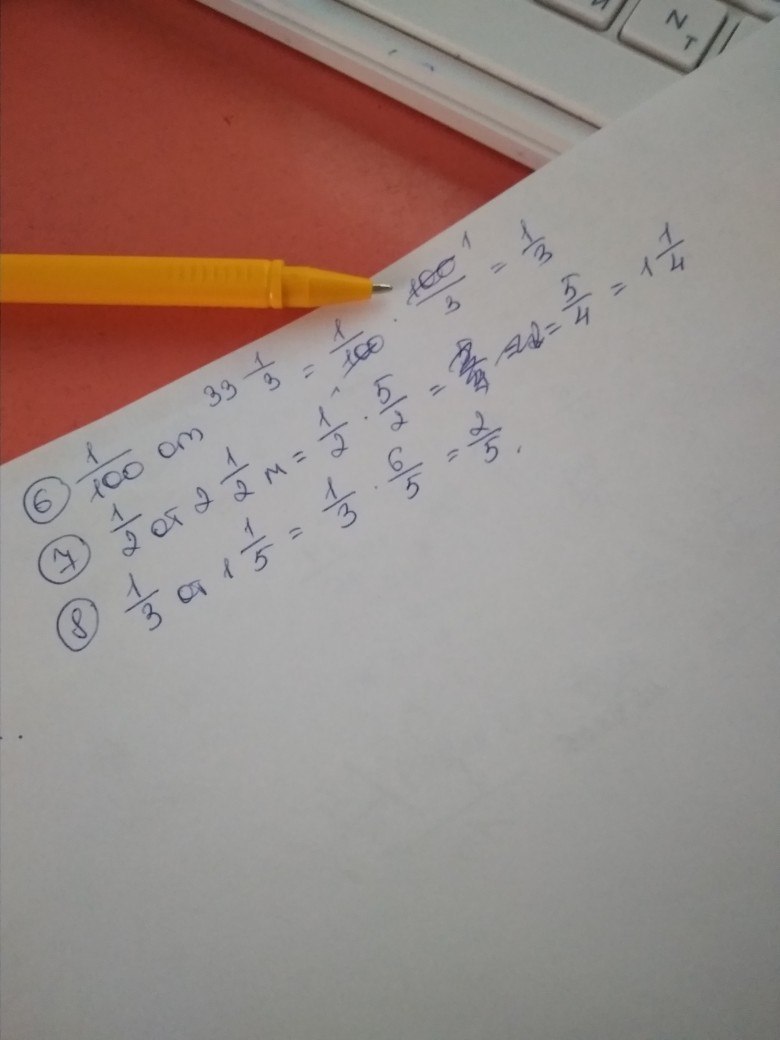 И N T
⑥ 1/100 от 33 1/3 = 1/100 · 100/3 1 = 1/3
1
⑦ 1/2 от 2 1/2 м = 1/2 · 5/2 = = 5/4 = 1 1/4
⑧ 1/3 от 1 1/5 = 1/3 · 6/5 = 2/5.